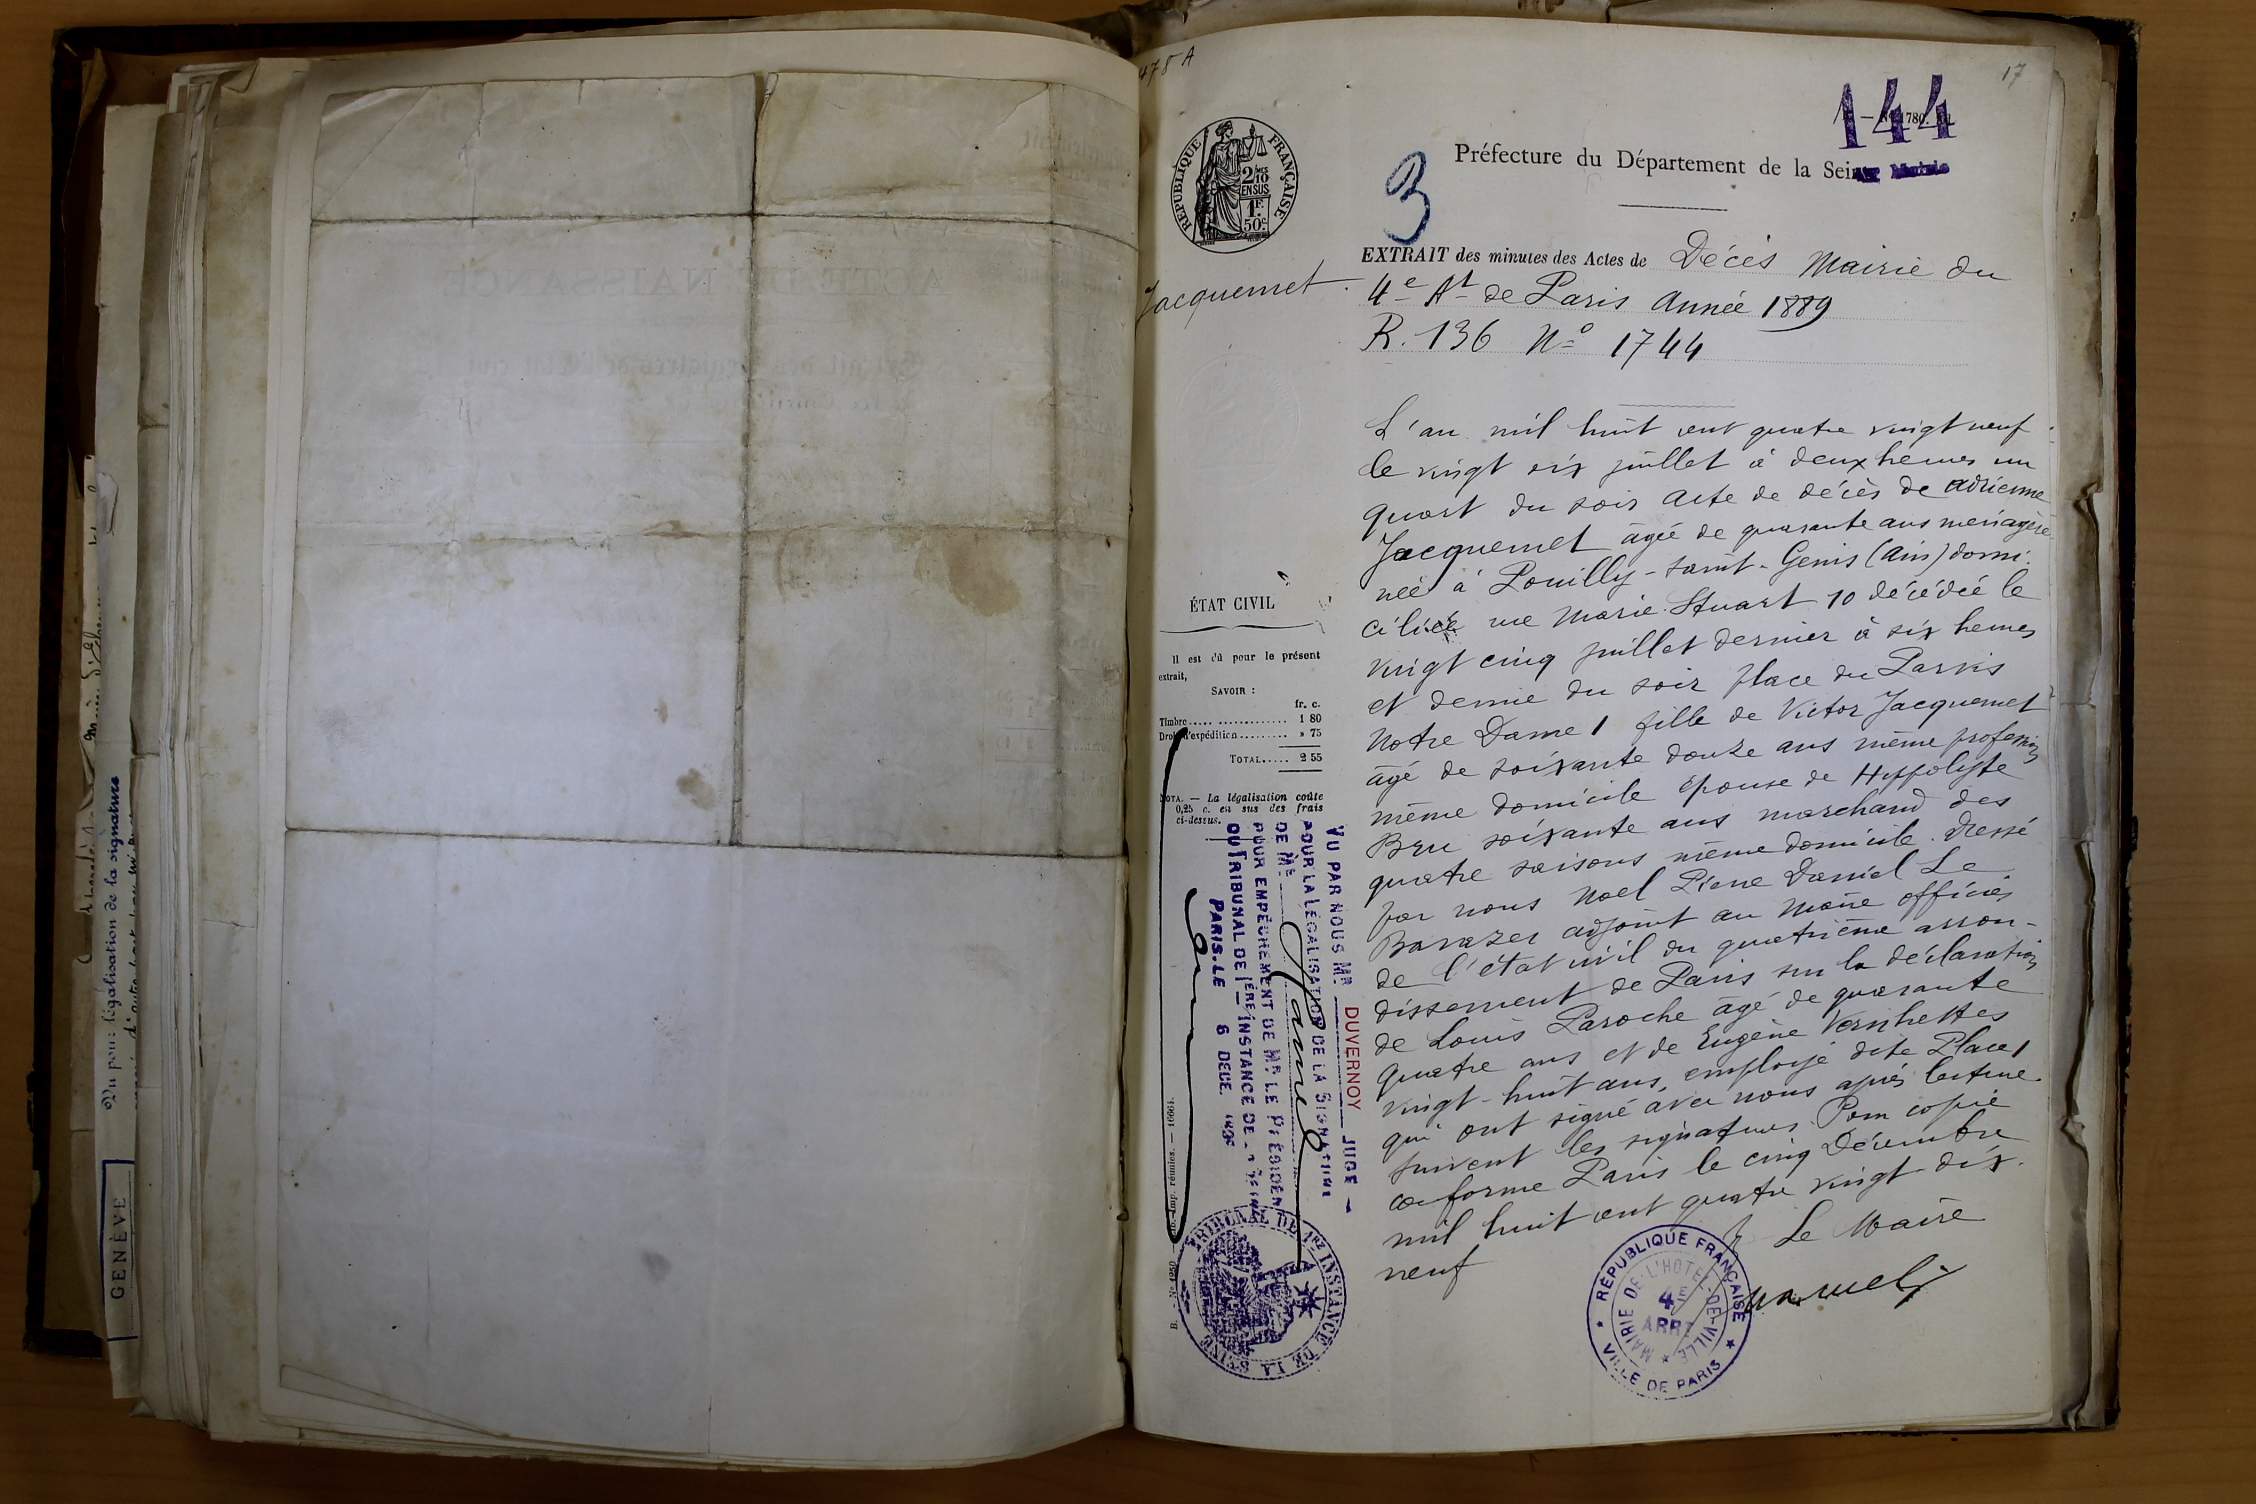 Vu pour légalisation de la signature
GENÈVE
478 A
17
144
RÉPUBLIQUE FRANÇAISE
2/10
EN SUS
1F.
50c.
3
Préfecture du Département de la Seine
EXTRAIT des minutes des Actes de Décès Mairie du
4e At de Paris année 1889
R. 136 No 1744
Jacquemet
L'an mil huit cent quatre vingt neuf
le vingt six juillet à deux heures un
quart du soir acte de décès de adrienne
Jacquemet âgée de quarante ans ménagère
née à Pouilly-saint-Genis (Ain) domi-
ciliée rue Marie Stuart 10 décédée le
vingt cinq juillet dernier à six heures
et demie du soir place du Parvis
Notre Dame 1 fille de Victor Jacquemet
âgé de soixante douze ans même profession
même domicile épouse de Hippolyte
Bru soixante ans marchand des
quatre saisons même domicile. Dressé
par nous Noel Pierre Daniel Le
Barazer adjoint au Maire officier
de l'état civil du quatrième arron-
dissement de Paris sur la déclaration
de Louis Laroche âgé de quarante
quatre ans et de Eugène Vernhettes
vingt-huit ans, employé dite Place 1
qui ont signé avec nous après lecture.
suivent les signatures. Pour copie
conforme Paris le cinq Décembre
mil huit cent quatre vingt dix-
neuf
Le Maire
ÉTAT CIVIL
Il est dû pour le présent
extrait,
SAVOIR :
fr. c.
Timbre..... 1 80
Droit d'expédition..... » 75
TOTAL..... 2 55
NOTA. — La légalisation coûte
0,25 c. en sus des frais
ci-dessus.
VU PAR NOUS MR DUVERNOY JUGE
POUR LA LÉGALISATION DE LA SIGNATURE
DE ME
POUR EMPÊCHEMENT DE MR LE PRÉSIDENT
DU TRIBUNAL DE 1ÈRE INSTANCE DE LA SEINE
PARIS, LE 6 DECE.
TRIBUNAL DE 1RE INSTANCE DE LA SEINE
RÉPUBLIQUE FRANÇAISE
MAIRIE DE L'HÔTEL-DE-VILLE
4E
ARRT
VILLE DE PARIS